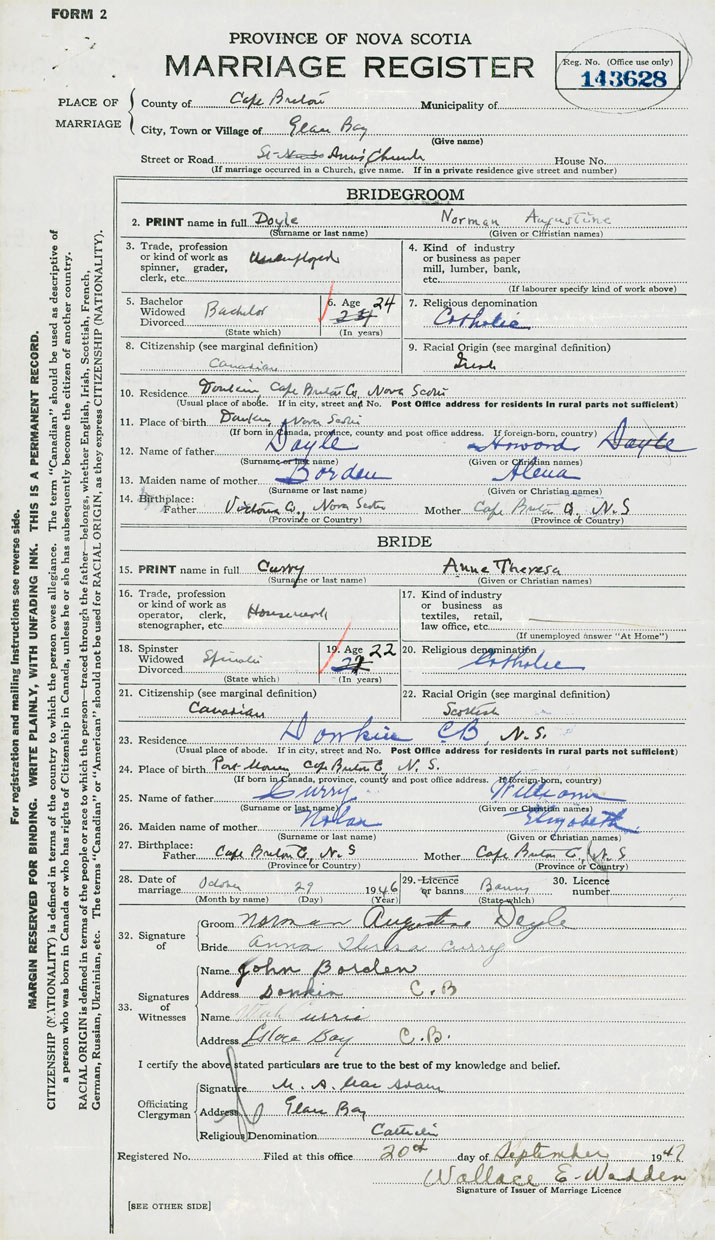 FORM 2
PROVINCE OF NOVA SCOTIA
MARRIAGE REGISTER
Reg. No. (Office use only)
143628
PLACE OF MARRIAGE
County of Cape Breton Municipality of
City, Town or Village of Glace Bay
(Give name)
Street or Road St Ann's Church House No.
(If marriage occurred in a Church, give name. If in a private residence give street and number)
BRIDEGROOM
2. PRINT name in full Doyle Norman Augustine
(Surname or last name) (Given or Christian names)
3. Trade, profession or kind of work as spinner, grader, clerk, etc. Unemployed
4. Kind of industry or business as paper mill, lumber, bank, etc.
(If labourer specify kind of work above)
5. Bachelor Widowed Divorced Bachelor
(State which)
6. Age 24
(In years)
7. Religious denomination
Catholic
8. Citizenship (see marginal definition)
Canadian
9. Racial Origin (see marginal definition)
Irish
10. Residence Donkin, Cape Breton Co, Nova Scotia
(Usual place of abode. If in city, street and No. Post Office address for residents in rural parts not sufficient)
11. Place of birth Donkin, Nova Scotia
(If born in Canada, province, county and post office address. If foreign-born, country)
12. Name of father Doyle Howard Doyle
(Surname or last name) (Given or Christian names)
13. Maiden name of mother Borden Alena
(Surname or last name) (Given or Christian names)
14. Birthplace:
Father Victoria Co., Nova Scotia Mother Cape Breton Co, N.S
(Province or Country) (Province or Country)
BRIDE
15. PRINT name in full Curry Anne Theresa
(Surname or last name) (Given or Christian names)
16. Trade, profession or kind of work as operator, clerk, stenographer, etc. Housework
17. Kind of industry or business as textiles, retail, law office, etc.
(If unemployed answer "At Home")
18. Spinster Widowed Divorced Spinster
(State which)
19. Age 22
(In years)
20. Religious denomination
Catholic
21. Citizenship (see marginal definition)
Canadian
22. Racial Origin (see marginal definition)
Scottish
23. Residence Donkin CB, N.S.
(Usual place of abode. If in city, street and No. Post Office address for residents in rural parts not sufficient)
24. Place of birth Port Morien Cape Breton Co, N.S.
(If born in Canada, province, county and post office address. If foreign-born, country)
25. Name of father Curry William
(Surname or last name) (Given or Christian names)
26. Maiden name of mother Nolan Elizabeth
(Surname or last name) (Given or Christian names)
27. Birthplace:
Father Cape Breton Co., N.S Mother Cape Breton Co, N.S
(Province or Country) (Province or Country)
28. Date of marriage October 29 1946
(Month by name) (Day) (Year)
29. Licence or banns Banns
(State which)
30. Licence number
32. Signature of
Groom Norman Augustine Doyle
Bride Anna Theresa Curry
33. Signatures of Witnesses
Name John Borden
Address Donkin C.B
Name
Address Glace Bay C.B.
I certify the above stated particulars are true to the best of my knowledge and belief.
Officiating Clergyman
Signature M. A.
Address Glace Bay
Religious Denomination Catholic
Registered No. Filed at this office 20th day of September 1947
Wallace E. Wadden
Signature of Issuer of Marriage Licence
[SEE OTHER SIDE]
For registration and mailing instructions see reverse side.
MARGIN RESERVED FOR BINDING. WRITE PLAINLY, WITH UNFADING INK. THIS IS A PERMANENT RECORD.
CITIZENSHIP (NATIONALITY) is defined in terms of the country to which the person owes allegiance. The term "Canadian" should be used as descriptive of
a person who was born in Canada or who has rights of Citizenship in Canada, unless he or she has subsequently become the citizen of another country.
RACIAL ORIGIN is defined in terms of the people or race to which the person—traced through the father—belongs, whether English, Irish, Scottish, French,
German, Russian, Ukrainian, etc. The terms "Canadian" or "American" should not be used for RACIAL ORIGIN, as they express CITIZENSHIP (NATIONALITY).